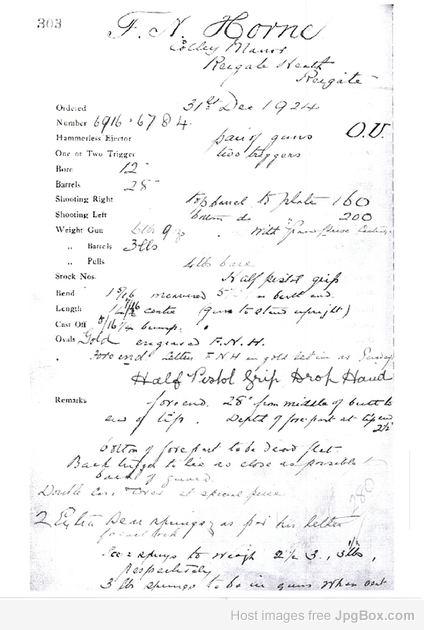 303
F. N. Horne
Colley Manor
Reigate Heath
Reigate
Ordered 31st Dec 1924
Number 6916 · 6784. O.U.
Hammerless Ejector pair of guns
One or Two Trigger two triggers
Bore 12
Barrels 28"
Shooting Right top barrel to plate 160
Shooting Left bottom do 200
Weight Gun 6lb 9 with
„ Barrels 3lbs
„ Pulls 4lb bare
Stock Nos. Half pistol grip
Bend measured
Length centre (guns to stand upright)
Cast Off 3/16 1/4 bump.
Ovals Gold engraved F.N.H.
Fore end letter F N H in gold let in as
Half Pistol Grip Drop Hand
Remarks fore end. 28" from middle of butt to
end of tip. Depth of forepart at tip end
2 1/2
bottom of forepart to be dead flat
Back trigger to lie as close as possible to
back of guard.
Double case at special price
280
2 Extra Sear springs as per his letter
Sear springs to weigh 2 1/2 3, 3 1/2 lbs,
respectively
3 lb springs to be in guns when sent
Host images free JpgBox.com